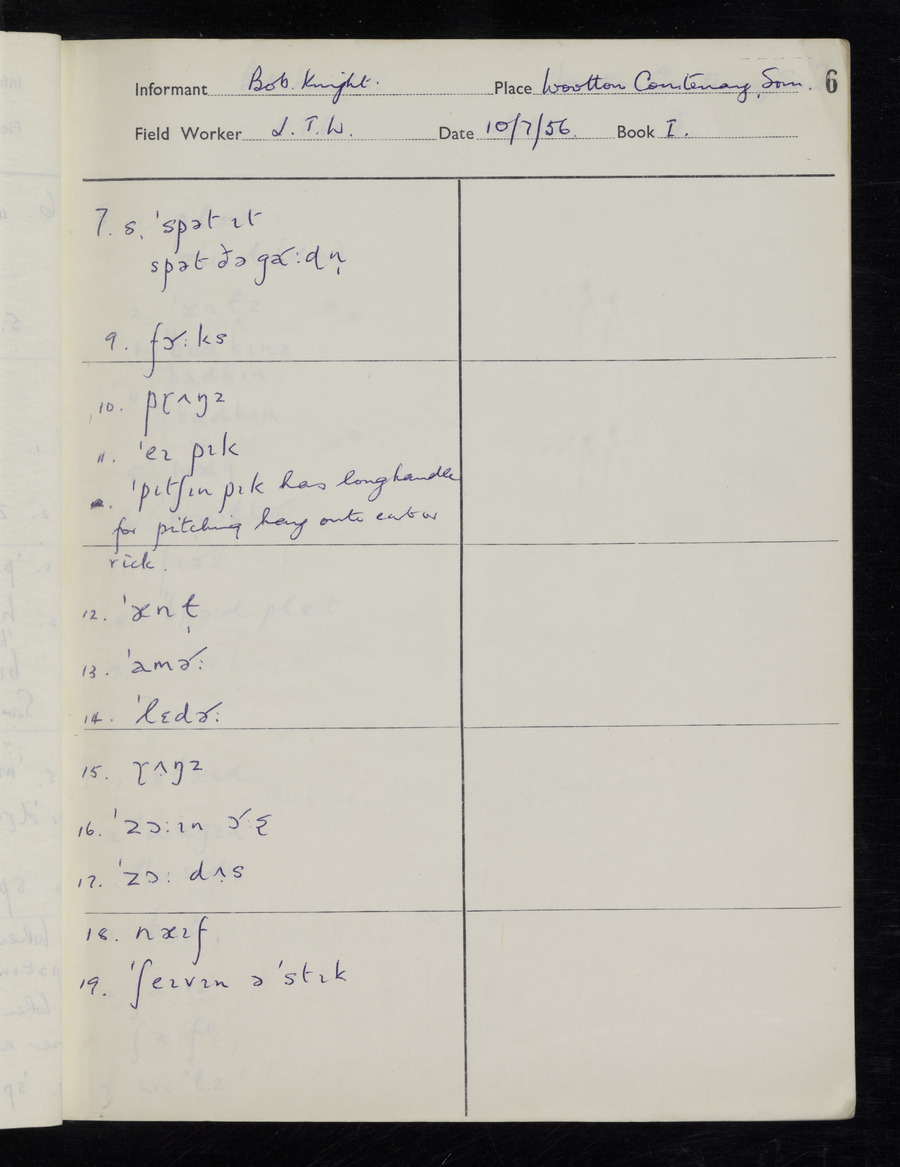 Informant Bob. Knight. Place Wootton Courtenay, Som. 6
Field Worker S. T. W. Date 10/7/56. Book I.
7. s. ˈspət ɪt
spət ðə gɚːdn̩
9. fɚːks
10. pɽʌŋz
11. ˈeɪ pɪk
ˈpɪtʃɪn pɪk has long handle
for pitching hay onto cart or
rick.
12. ˈænt̩
13. ˈamɚː
14. ˈlɛdɚː
15. ɽʌŋz
16. ˈzɔːɪn
17. ˈzɔː dʌs
18. næɪf
19. ˈʃeɪvɪn əˈstɪk